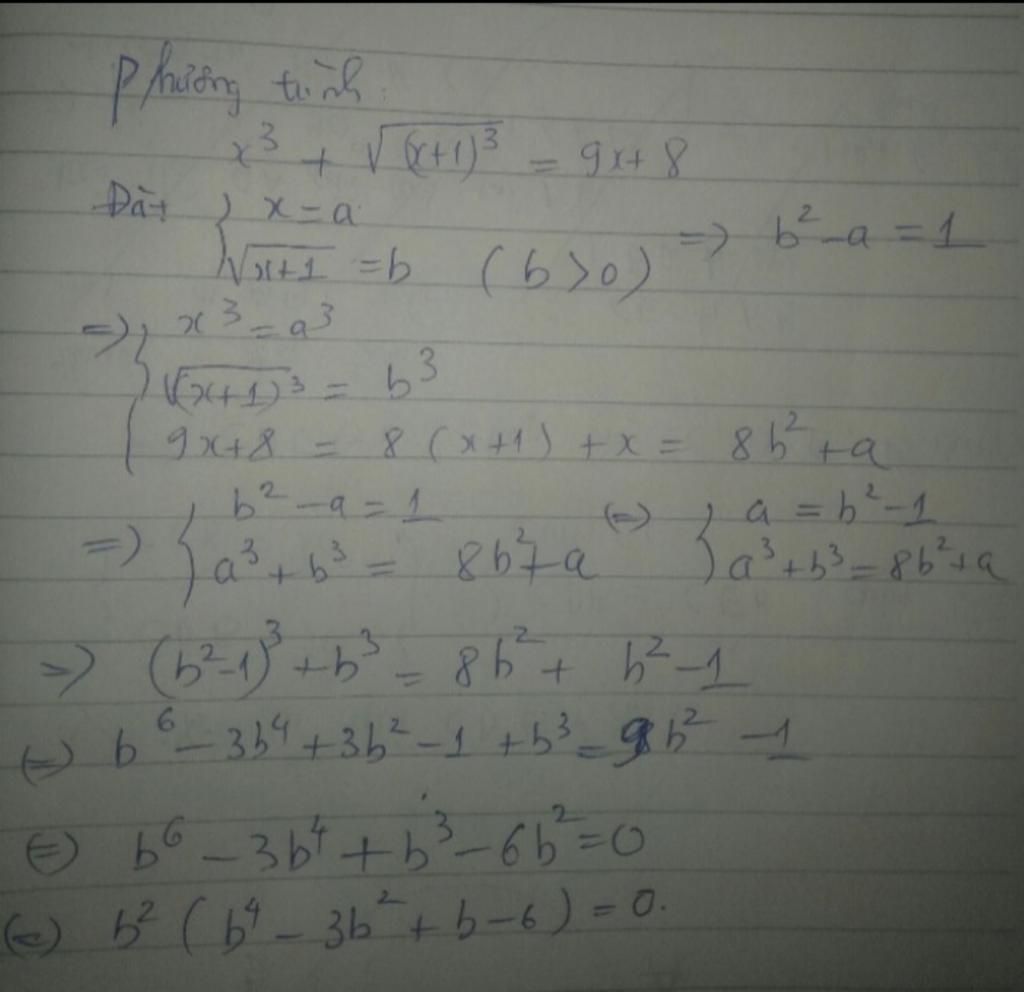 Phương trình:
x³ + √(x+1)³ = 9x+8
Đặt { x = a
√x+1 = b ( b > 0 ) => b² - a = 1
=> { x³ = a³
√(x+1)³ = b³
9x+8 = 8 (x+1) + x = 8b² + a
=> { b² - a = 1 (=) { a = b² - 1
a³ + b³ = 8b² + a a³ + b³ = 8b² + a
=> (b²-1)³ + b³ = 8b² + b² - 1
(=) b⁶ - 3b⁴ + 3b² - 1 + b³ = 9b² - 1
(=) b⁶ - 3b⁴ + b³ - 6b² = 0
(=) b² ( b⁴ - 3b² + b - 6 ) = 0.